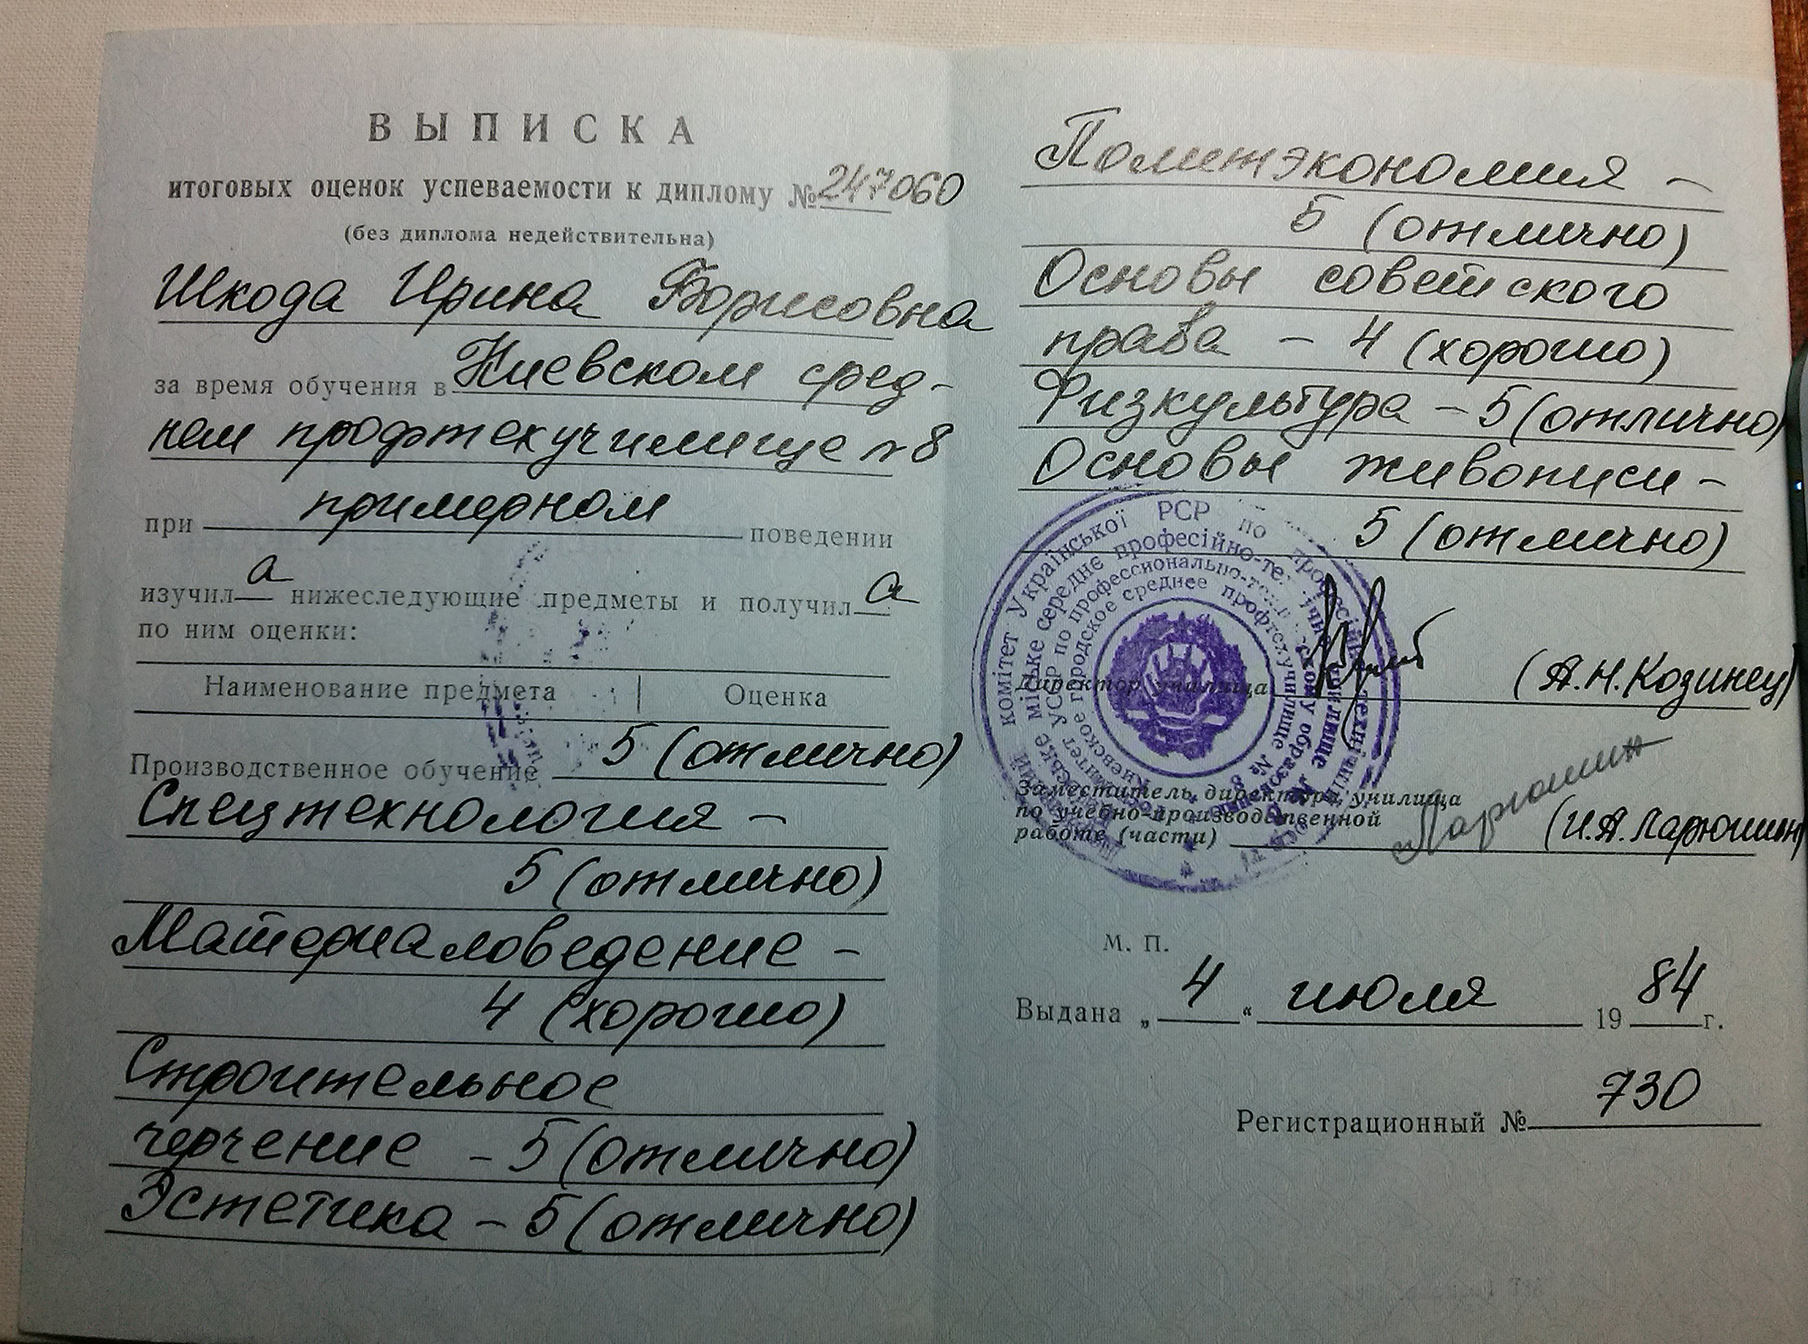 ВЫПИСКА
итоговых оценок успеваемости к диплому № 247060
(без диплома недействительна)
Шкода Ирина Борисовна
за время обучения в Киевском сред-
нем профтехучилище №8
при примерном поведении
изучила нижеследующие предметы и получила
по ним оценки:
Наименование предмета | Оценка
Производственное обучение 5 (отлично)
Спецтехнология –
5 (отлично)
Материаловедение –
4 (хорошо)
Строительное
черчение – 5 (отлично)
Эстетика – 5 (отлично)
Политэкономия –
5 (отлично)
Основы советского
права – 4 (хорошо)
Физкультура – 5 (отлично)
Основы живописи –
5 (отлично)
комітет Української РСР по професійно-технічній
міське середнє професійно-технічне училище №
комитет УССР по профессионально-
Киевское городское среднее профтехучилище № 8
Директор училища (А.Н.Козинец)
Заместитель директора училища
по учебно-производственной
работе (части) Ларюшин (И.А.Ларюшин)
М. П.
Выдана „ 4 “ июля 1984 г.
Регистрационный № 730